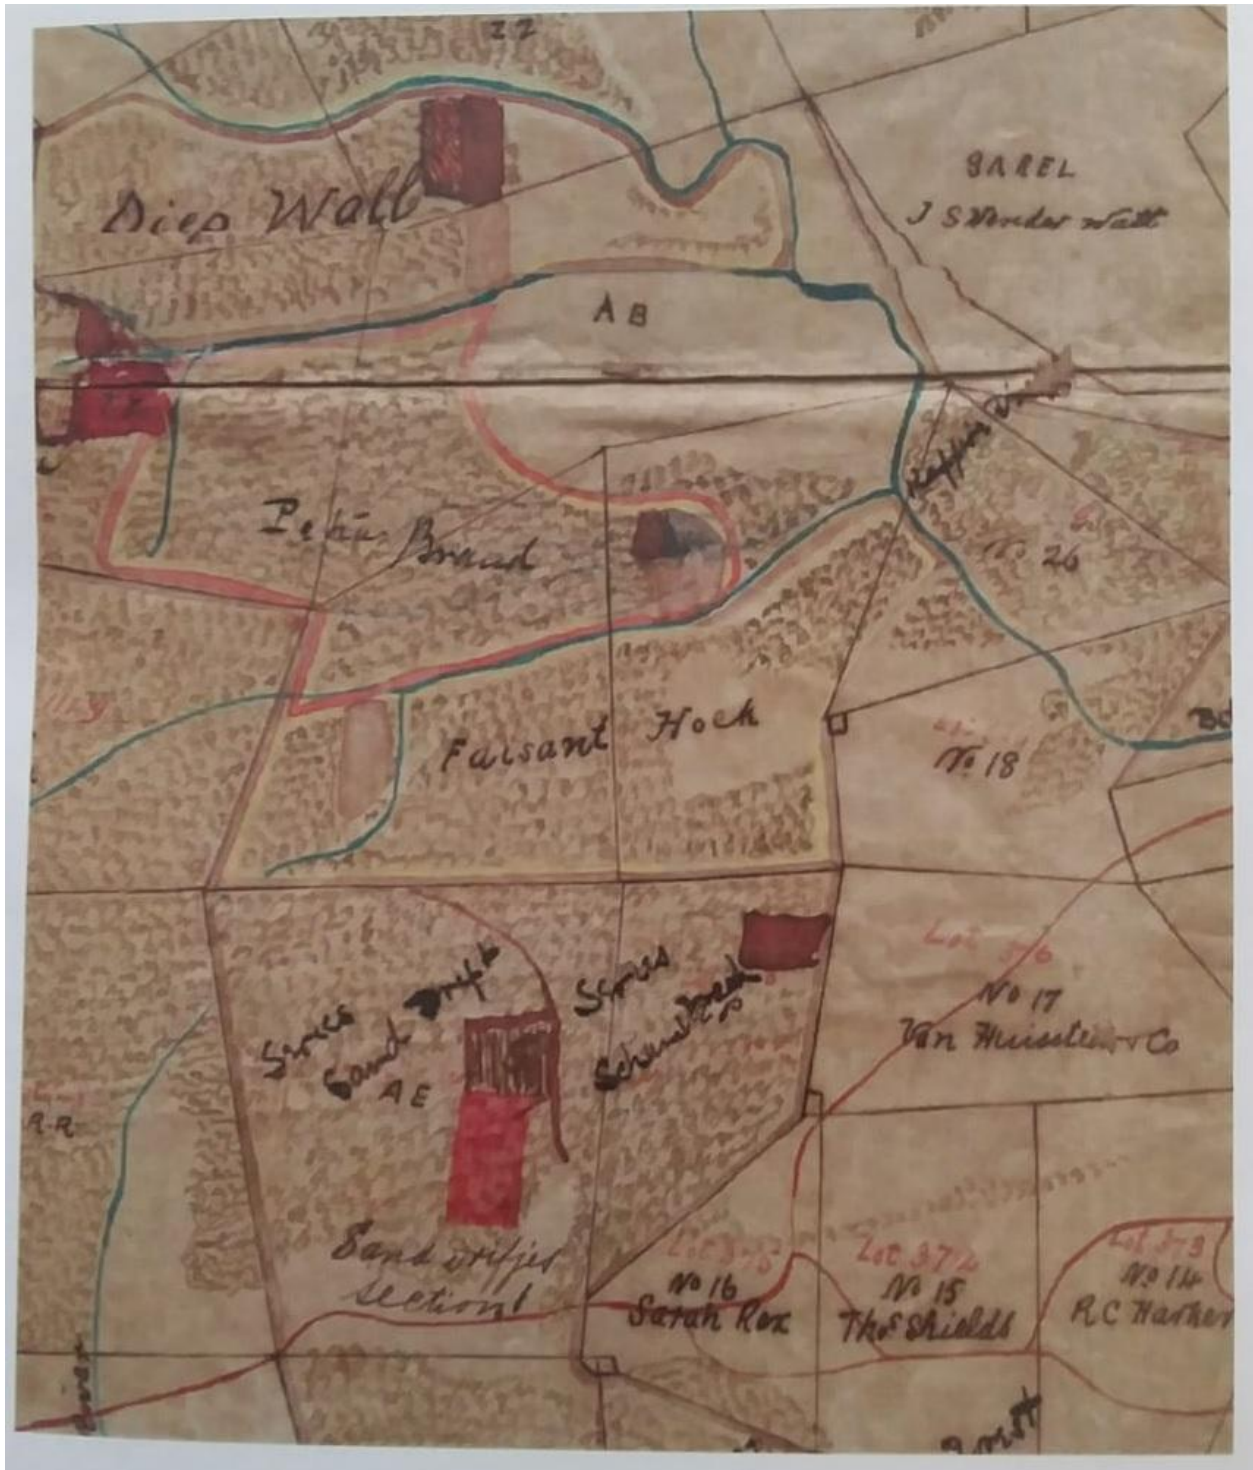 22
Diep Wall
SAREL
J S Vender Watt
A B
Petrus Brand
No 26
Faisant Hock
No 18
Lot 376
No 17
Van & Co
Series
Sand Drift
A E
Series
R.R
Sand Driftjes
section 1
Lot 375
No 16
Sarah Rex
Lot 374
No 15
Thos Shields
Lot 373
No 14
R C Harker